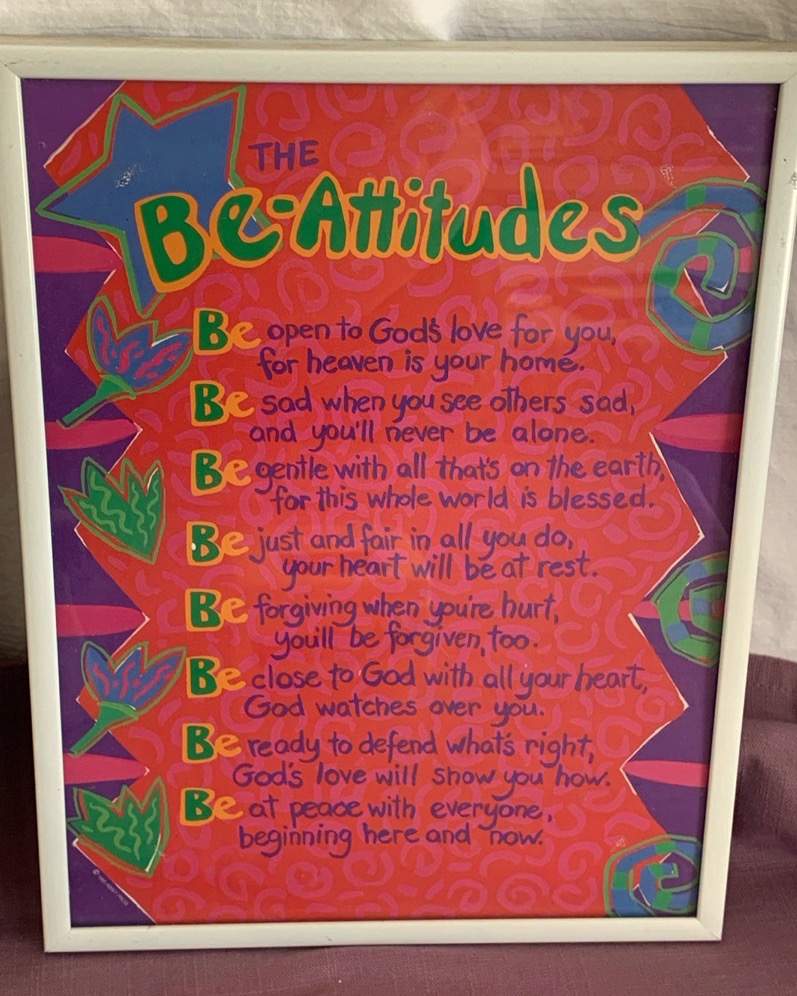 THE
Be-Attitudes
Be open to God's love for you,
for heaven is your home.
Be sad when you see others sad,
and you'll never be alone.
Be gentle with all that's on the earth,
for this whole world is blessed.
Be just and fair in all you do,
your heart will be at rest.
Be forgiving when you're hurt,
you'll be forgiven, too.
Be close to God with all your heart,
God watches over you.
Be ready to defend what's right,
God's love will show you how.
Be at peace with everyone,
beginning here and now.